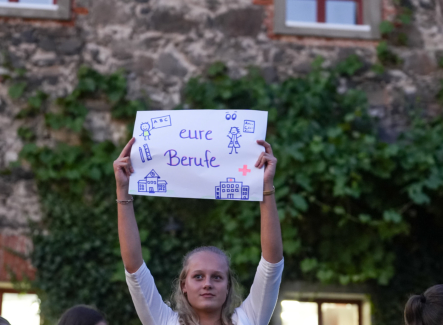 ABC
eure
Berufe